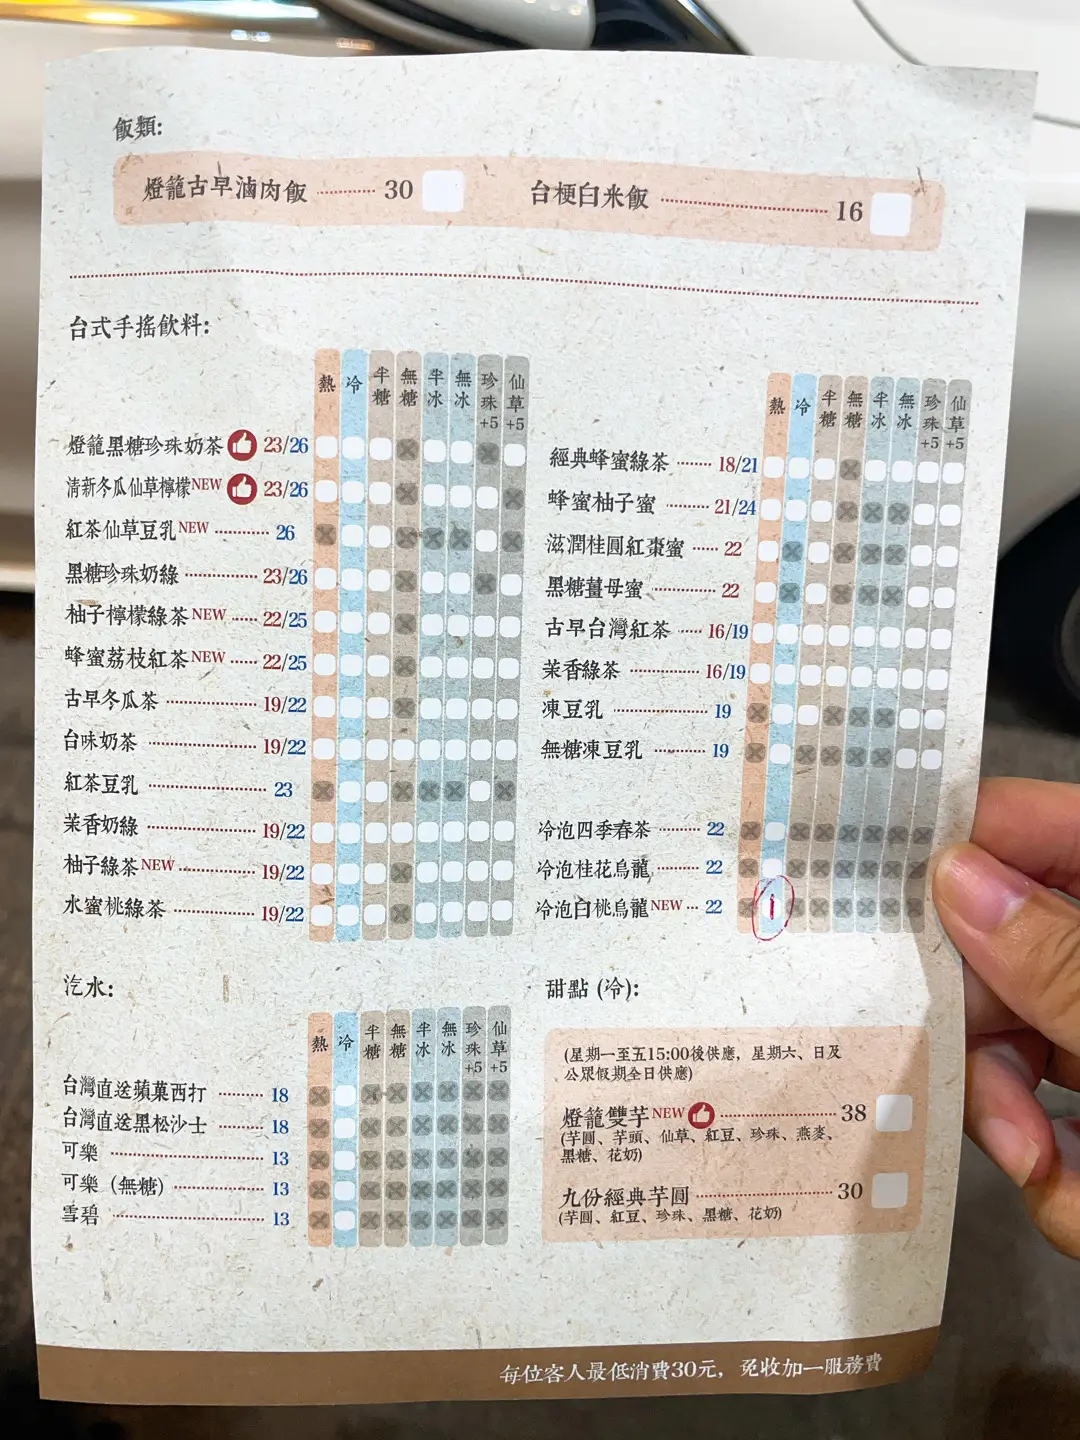 飯類:
燈籠古早滷肉飯 ········ 30
台梗白米飯 ···················· 16
台式手搖飲料:
熱 冷 半糖 無糖 半冰 無冰 珍珠+5 仙草+5
燈籠黑糖珍珠奶茶 23/26
清新冬瓜仙草檸檬NEW 23/26
紅茶仙草豆乳NEW ·········· 26
黑糖珍珠奶綠 ············ 23/26
柚子檸檬綠茶NEW ····· 22/25
蜂蜜荔枝紅茶NEW ····· 22/25
古早冬瓜茶 ··············· 19/22
台味奶茶 ·················· 19/22
紅茶豆乳 ··················· 23
茉香奶綠 ·················· 19/22
柚子綠茶NEW ············ 19/22
水蜜桃綠茶 ··············· 19/22
熱 冷 半糖 無糖 半冰 無冰 珍珠+5 仙草+5
經典蜂蜜綠茶 ······ 18/21
蜂蜜柚子蜜 ········ 21/24
滋潤桂圓紅棗蜜 ····· 22
黑糖薑母蜜 ············ 22
古早台灣紅茶 ···· 16/19
茉香綠茶 ············ 16/19
凍豆乳 ················ 19
無糖凍豆乳 ·········· 19
冷泡四季春茶 ······· 22
冷泡桂花烏龍 ······· 22
冷泡白桃烏龍NEW ··· 22
1
汽水:
熱 冷 半糖 無糖 半冰 無冰 珍珠+5 仙草+5
台灣直送蘋菓西打 ········ 18
台灣直送黑松沙士 ········ 18
可樂 ························· 13
可樂（無糖） ··············· 13
雪碧 ························· 13
甜點 (冷):
(星期一至五15:00後供應, 星期六、日及
公眾假期全日供應)
燈籠雙芋NEW ················ 38
(芋圓、芋頭、仙草、紅豆、珍珠、燕麥、
黑糖、花奶)
九份經典芋圓 ·················· 30
(芋圓、紅豆、珍珠、黑糖、花奶)
每位客人最低消費30元, 免收加一服務費